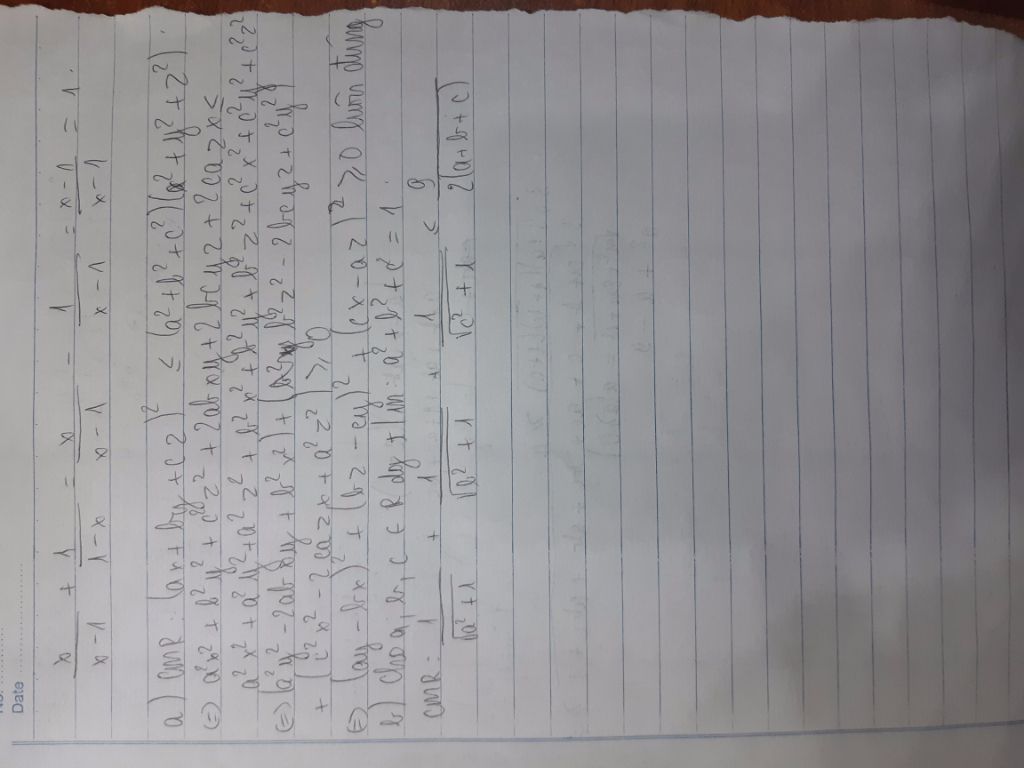 No:
Date
x/(x-1) + 1/(1-x) = x/(x-1) - 1/(x-1) = (x-1)/(x-1) = 1.
a) CMR: (ax + by + cz)² ≤ (a² + b² + c²)(x² + y² + z²).
(=) a²x² + b²y² + c²z² + 2abxy + 2bcyz + 2cazx ≤
a²x² + a²y² + a²z² + b²x² + b²y² + b²z² + c²x² + c²y² + c²z²
(=) (a²y² - 2abxy + b²x²) + (b²z² - 2bcyz + c²y²)
+ (c²x² - 2cazx + a²z²) ≥ 0
(=) (ay - bx)² + (bz - cy)² + (cx - az)² ≥ 0 luôn đúng
b) cho a, b, c ∈ R day t/m: a² + b² + c² = 1.
CMR: 1/√(a² + 1) + 1/√(b² + 1) + 1/√(c² + 1) < 9/(2(a + b + c))